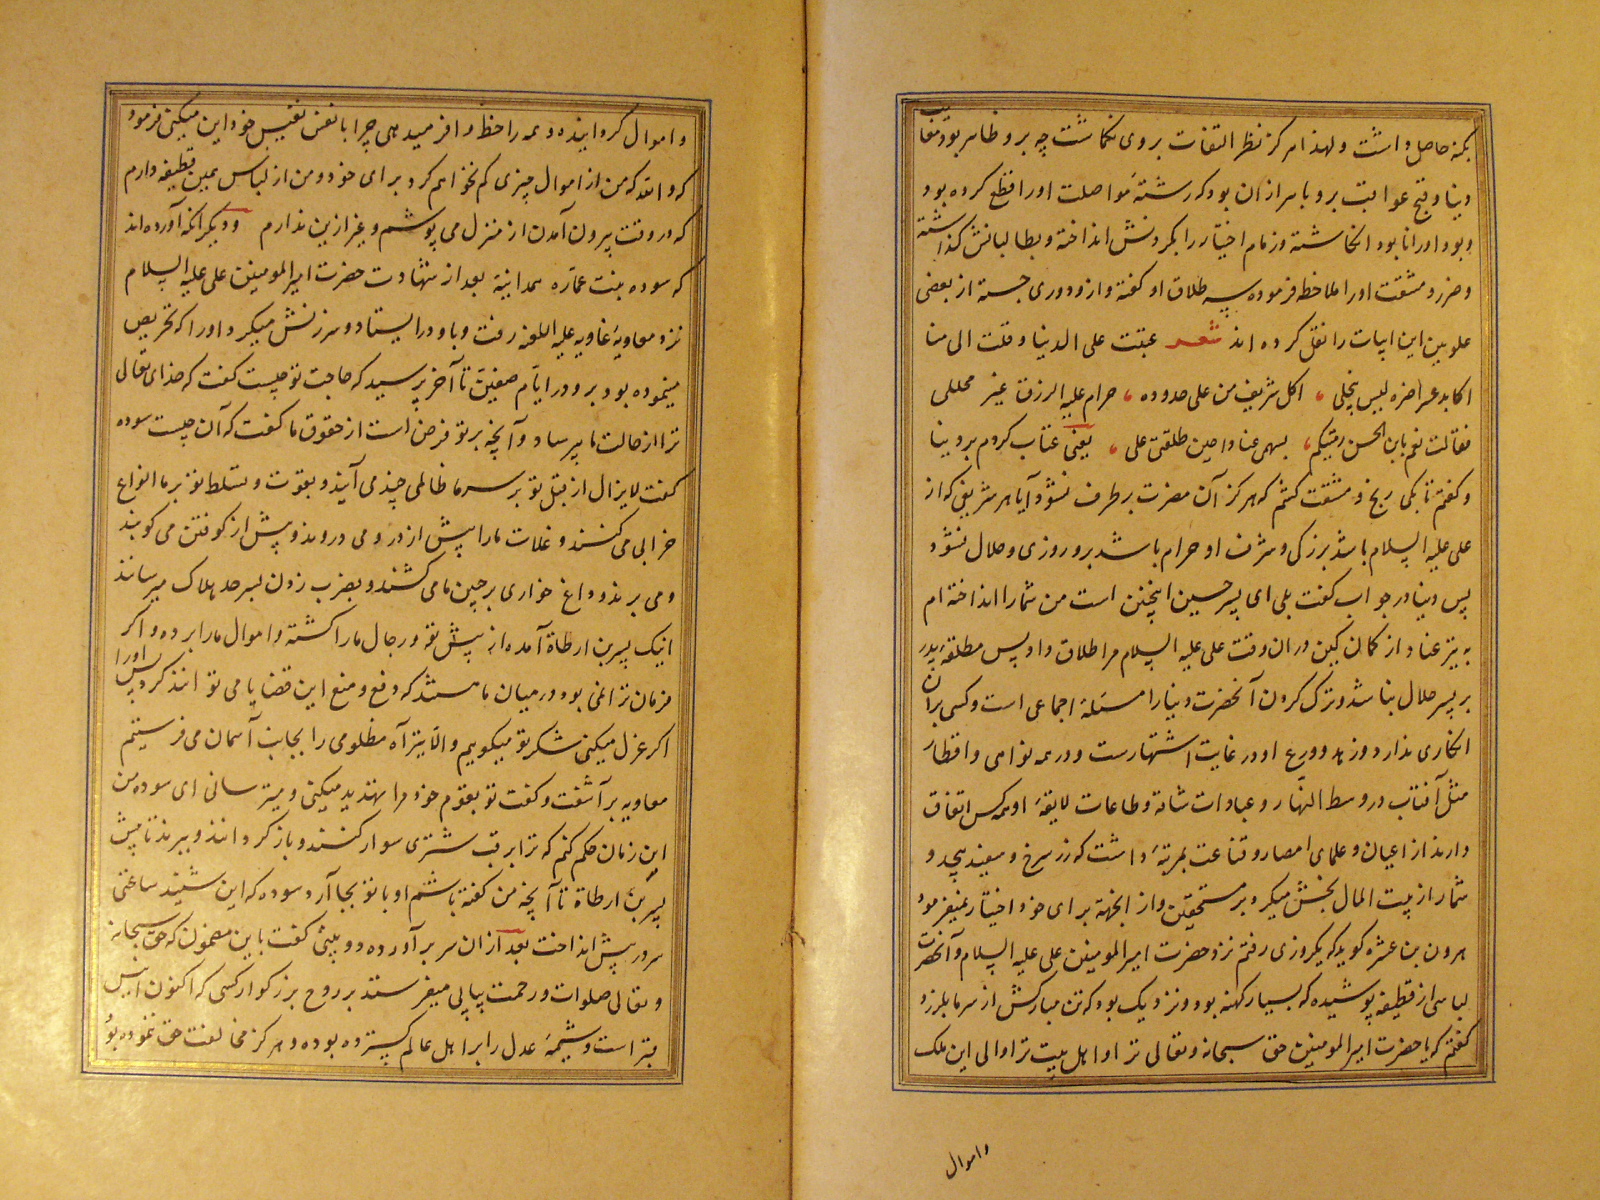 بکنه حاصل داشت ولهذا هرگز نظر التفات بروی نگماشت چه برو ظاهر بود معایب
دنیا و قبح عواقبت برو باهر ازان بود که رشتهٔ مواصلت اورا قطع کرده بود
وبود اورا نابود انگاشته وزمام اختیار را بگردنش انداخته وبطالبانش گذاشته
وضرر ومشقت اورا ملاحظه فرموده سه طلاق او گفته وازو دوری جسته از بعضی
علویین این ابیات را نقل کرده اند شعر عتبت علی الدنیا وقلت الی متا
اکابد عسرا ضره لیس ینجلی اکل شریف من علی جدوده حرام علیه الرزق غیر محللی
فقالت نعم یابن الحسین رمیتکم بسهمی عنادا حین طلقنی علی یعنی عتاب کردم بر دنیا
وگفتم تا بکی رنج ومشقت کشم که هرگز آن مضرت برطرف نشود آیا هر شریفی که از
علی علیه السلام باشد بزرگی وشرف او حرام باشد برو روزی وحلال نشود
پس دنیا در جواب گفت بلی ای پسر حسین اینچنین است من شمارا انداخته ام
به تیر عناد از کمان کین دران وقت علی علیه السلام مرا طلاق داد پس مطلقهٔ پدر
بر پسر حلال نباشد وترک کردن آنحضرت دنیارا مسئلهٔ اجماعی است وکسی بران
انکاری ندارد وزهد وورع او در غایت اشتهارست ودر همه نواحی واقطار
مثل آفتاب در وسط النهار وعبادات شاقه وطاعات لایقهٔ او همه کس اتفاق
دارند از اعیان وعلمای امصار وقناعت بمرتبهٔ داشت که زر سرخ وسفید بیحد و
شمار از بیت المال بخش میکرد بر مستحقین واز انجهة برای خود اختیار نمیفرمود
هرون بن عنتره گوید که یکروزی رفتم نزد حضرت امیرالمومنین علی علیه السلام وآنحضرت
لباسی از قطیفه پوشیده که بسیار کهنه بود ونزدیک بود که تن مبارکش از سرما بلرزد
گفتم که یا حضرت امیرالمومنین حق سبحانه وتعالی ترا واهل بیت ترا والی این ملک
واموال
واموال گردانیده وهمه را حظ وافر میدهی چرا با نفس نفیس خود این میکنی فرمود
که والله که من از اموال چیزی کم نخواهم کرد برای خود ومن از لباس همین قطیفه دارم
که در وقت بیرون آمدن از منزل می پوشم وغیر ازین ندارم ودیگر آنکه آورده اند
که سوده بنت عماره همدانیة بعد از شهادت حضرت امیرالمومنین علی علیه السلام
نزد معاویهٔ غاویه علیه اللعنه رفت وباو در ایستاد وسرزنش میکرد اورا که تحریص
مینموده بود برو در ایام صفین تا آخر پرسید که حاجت تو چیست گفت که خدای تعالی
ترا از حالت ما پرساد وآنچه بر تو فرض است از حقوق ما گفت که آن چیست سوده
گفت لایزال از قبل تو بر سر ما ظالمی چند می آیند وبقوت وتسلط تو بر ما انواع
خرابی می کنند وغلات مارا پیش از درو می دروند وپیش از کوفتن می کوبند
ومی برند وداغ خواری بر جبین ما می کشند وبضرب زدن بسرحد هلاک میرسانند
اینک بسر بن ارطاة آمده از پیش تو ورجال مارا کشته واموال مارا برده واگر
فرمان ترا نمی بود در میان ما هستند که دفع ومنع این قضایا می توانند کرد پس اورا
اگر عزل میکنی شکر تو میگوییم والا تیر آه مظلومی را بجانب آسمان می فرستیم
معاویه برآشفت وگفت تو بقوم خود مرا تهدید میکنی ومیترسانی ای سوده من
این زمان حکم کنم که ترا برقب شتری سوار کنند وباز گردانند وببرند تا پیش
بسر بن ارطاة تا آنچه من گفته باشم او با تو بجا آرد سوده که این شنید ساعتی
سر در پیش انداخت بعد ازان سر برآورده دو بیتی گفت باین مضمون که حق سبحانه
وتعالی صلوات ورحمت پیاپی میفرستد بر روح بزرگوار کسی که اکنون انیس
قبر است وشیمهٔ عدل را بر اهل عالم گسترده بوده وهرگز مخالفت حق ننموده بود